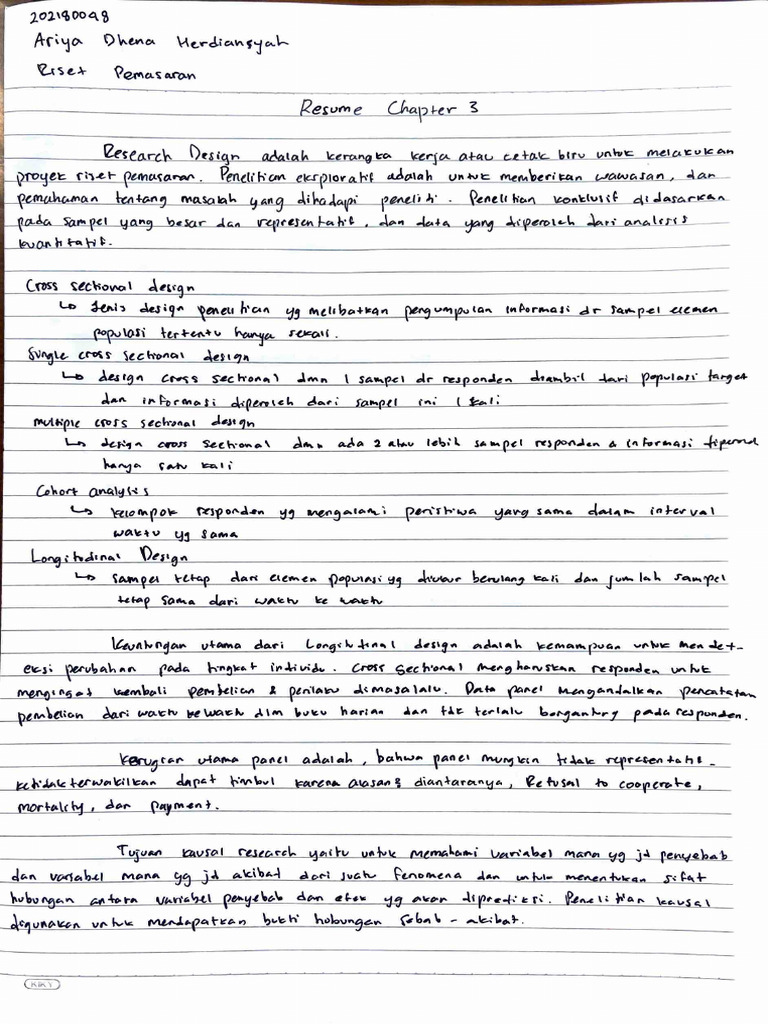 202180048
Ariya Dhena Herdiansyah
Riset Pemasaran
Resume Chapter 3
Research Design adalah kerangka kerja atau cetak biru untuk melakukan
proyek riset pemasaran. Penelitian eksploratif adalah untuk memberikan wawasan, dan
pemahaman tentang masalah yang dihadapi peneliti. Penelitian konklusif didasarkan
pada sampel yang besar dan representatif, dan data yang diperoleh dari analisis
kuantitatif.
Cross sectional design
↳ Jenis design penelitian yg melibatkan pengumpulan informasi dr sampel elemen
populasi tertentu hanya sekali.
Single cross sectional design
↳ design cross sectional dmn 1 sampel dr responden diambil dari populasi target
dan informasi diperoleh dari sampel ini 1 kali
multiple cross sectional design
↳ design cross sectional dmn ada 2 atau lebih sampel responden & informasi diperol
hanya satu kali
Cohort analysis
↳ kelompok responden yg mengalami peristiwa yang sama dalam interval
waktu yg sama
Longitudinal Design
↳ sampel tetap dari elemen populasi yg diukur berulang kali dan jumlah sampel
tetap sama dari waktu ke waktu
Keuntungan utama dari longitudinal design adalah kemampuan untuk mendet-
eksi perubahan pada tingkat individu. Cross sectional mengharuskan responden untuk
mengingat kembali pembelian & perilaku dimasalalu. Data panel mengandalkan pencatatan
pembelian dari waktu ke waktu dlm buku harian dan tdk terlalu bergantung pada responden.
Kerugian utama panel adalah, bahwa panel mungkin tidak representatif.
ketidakterwakilkan dapat timbul karena alasan² diantaranya, Refusal to cooperate,
mortality, dan payment.
Tujuan kausal research yaitu untuk memahami variabel mana yg jd penyebab
dan variabel mana yg jd akibat dari suatu fenomena dan untuk menentukan sifat
hubungan antara variabel penyebab dan efek yg akan diprediksi. Penelitian kausal
digunakan untuk mendapatkan bukti hubungan sebab - akibat.
KIKY